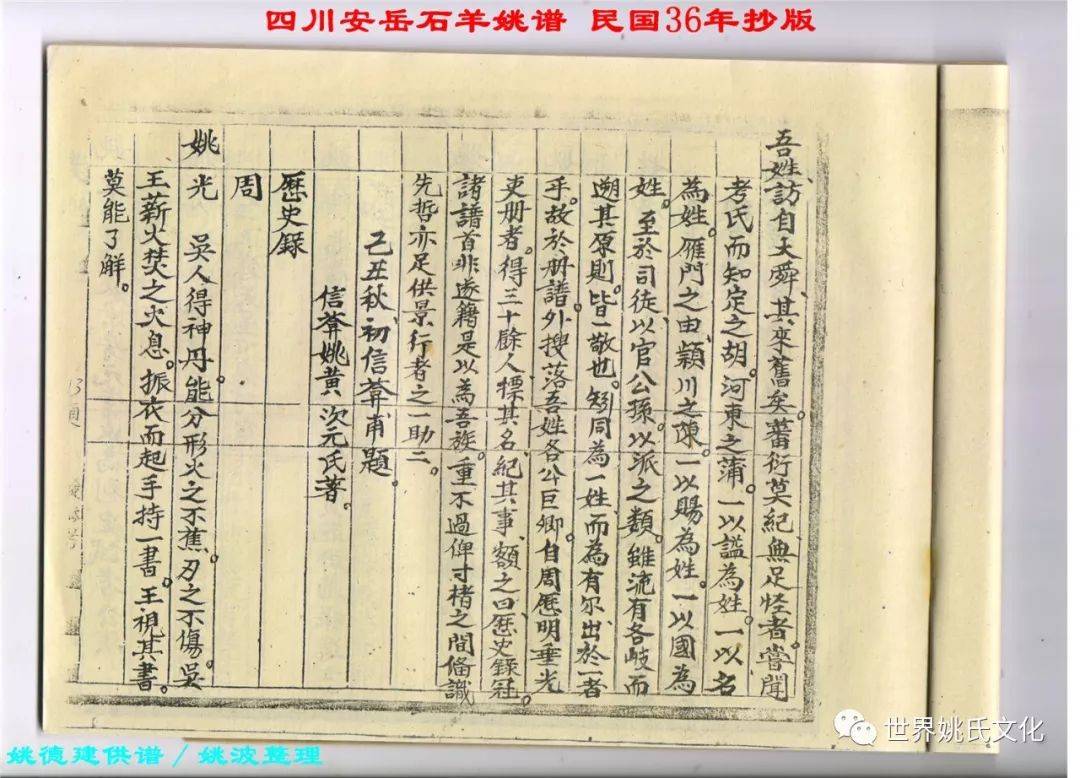 四川安岳石羊姚谱 民国36年抄版
吾姓、訪自大舜、其來舊矣。蕃衍莫紀、無足怪者、嘗聞
考氏而知定之胡。河東之蒲。一以謚為姓。一以名
為姓。雁門之由、穎川之陳。一以賜為姓。一以國為
姓。至於司徒以官公孫。以派之類。雖流有各岐而
遡其原則。皆一敬也。矧同為一姓、而為有尔、出於一者
乎。故於册譜。外搜落吾姓各公巨卿。自周歷明垂光
吏册者。得三十餘人、標其名、紀其事、額之曰、歷史錄冠。
諸譜首、非遂籍是以為吾族。重不過俾寸楮之間、俻識
先哲亦足供景行者之一助二。
己丑秋、初信葊甫題。
信葊姚黄次元氏著。
歷史錄
周
姚光 吳人得神丹。能分形火之不蕉。刃之不傷。吳
王薪火焚之、火息。振衣而起手持一書。王視其書。
莫能了解。
13頁
世界姚氏文化
姚德建供谱/姚波整理